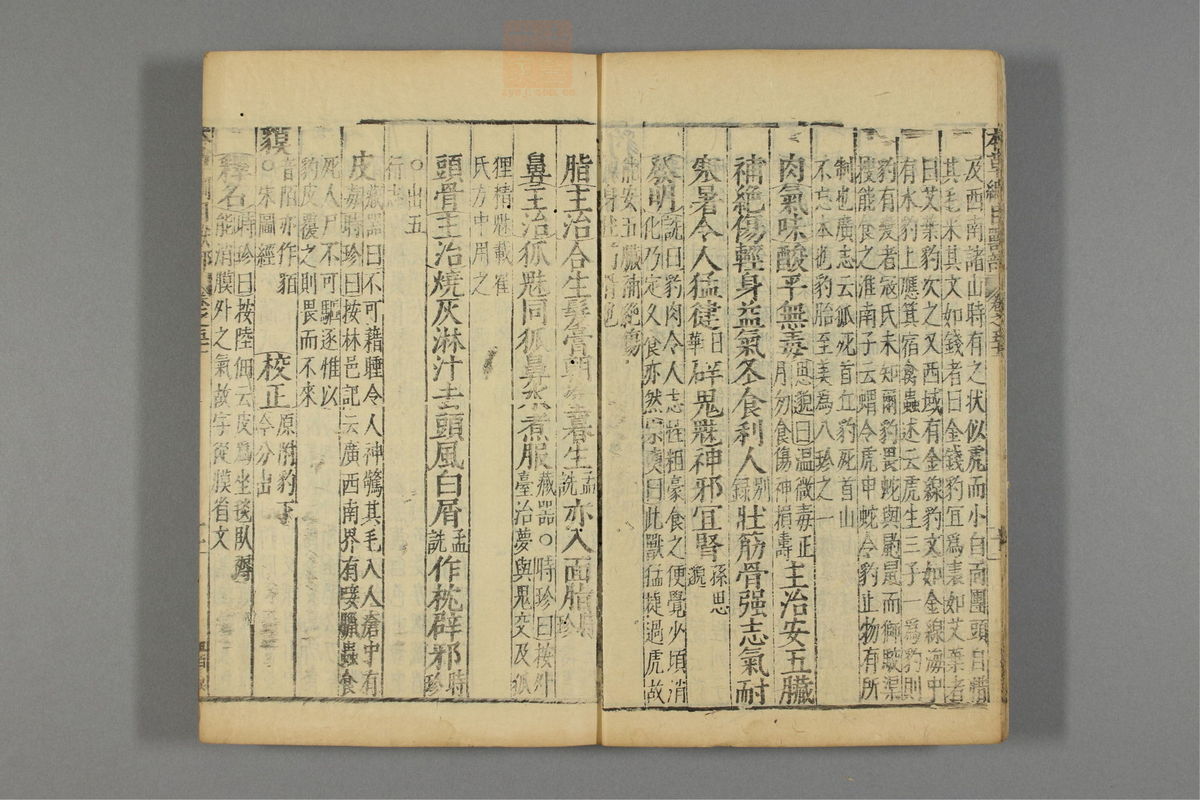 本草綱目獸部
及西南諸山時有之状似虎而小白面團頭自惜
其毛采其文如錢者曰金錢豹宜爲裘如艾葉者
曰艾葉豹次之又西域有金線豹文如金線海中
有水豹上應箕宿禽蟲述云虎生三子一爲豹則
豹有變者寇氏未知爾豹畏蛇與鼠而獅駮渠
搜能食之淮南子云蝟令虎申蛇令豹止物有所
制也廣志云狐死首丘豹死首山
不忘本也豹胎至美為八珍之一
肉氣味酸平無毒思邈曰温微毒正
月勿食傷神損壽主治安五臟
補絶傷輕身益氣冬食利人别録壯筋骨强志氣耐
寒暑令人猛健日華辟鬼魅神邪宜腎孫思邈
發明詵曰豹肉令人志性粗豪食之便覺少頃消
化乃定久食亦然宗奭曰此獸猛捷過虎故
能安五臟補絶傷
脂主治合生髮膏朝塗暮生孟詵亦入面脂時珍
鼻主治狐魅同狐鼻水煮服藏器○時珍曰按外
臺治夢與鬼交及狐
狸精魅載崔
氏方中用之
頭骨主治燒灰淋汁去頭風白屑孟詵作枕辟邪時珍
○出五
行志
皮藏器曰不可藉睡令人神驚其毛入人瘡中有
毒時珍曰按林邑記云廣西南界有唼臘蟲食
死人尸不可驅逐惟以
豹皮覆之則畏而不來
貘音陌亦作貊
○宋圖經
校正原附豹下
今分出
釋名時珍曰按陸佃云皮爲坐毯臥褥
能消膜外之氣故字從膜省文